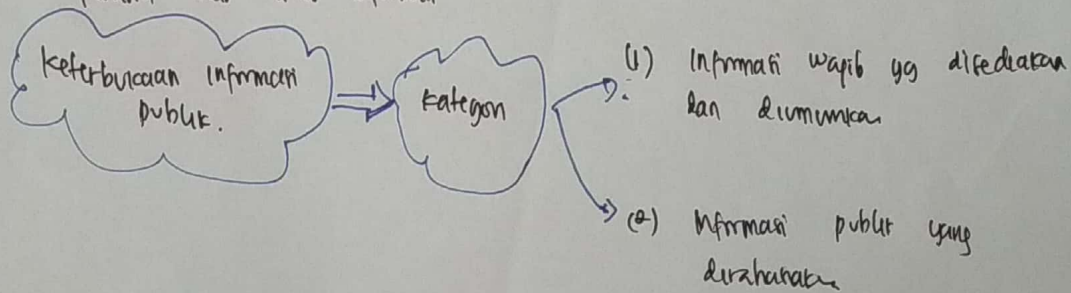 Keterbukaan Informasi
publik.
kategori
(1) Informasi wajib yg disediakan
dan diumumkan
(2) Informasi publik yang
dirahasiakan